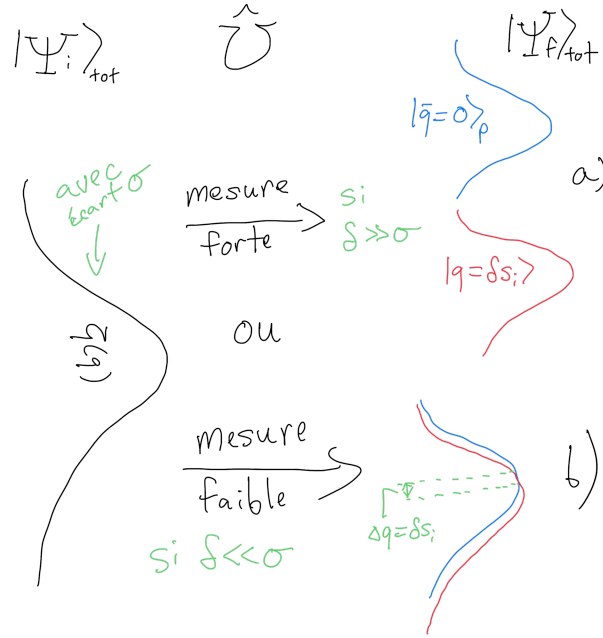 |Ψᵢ⟩tot Û |Ψf⟩tot
|q̄=0⟩p
a)
avec
écart σ
mesure
forte
si
δ>>σ
|q=δsᵢ⟩
ou
mesure
faible
si δ<<σ
Δq=δsᵢ
b)